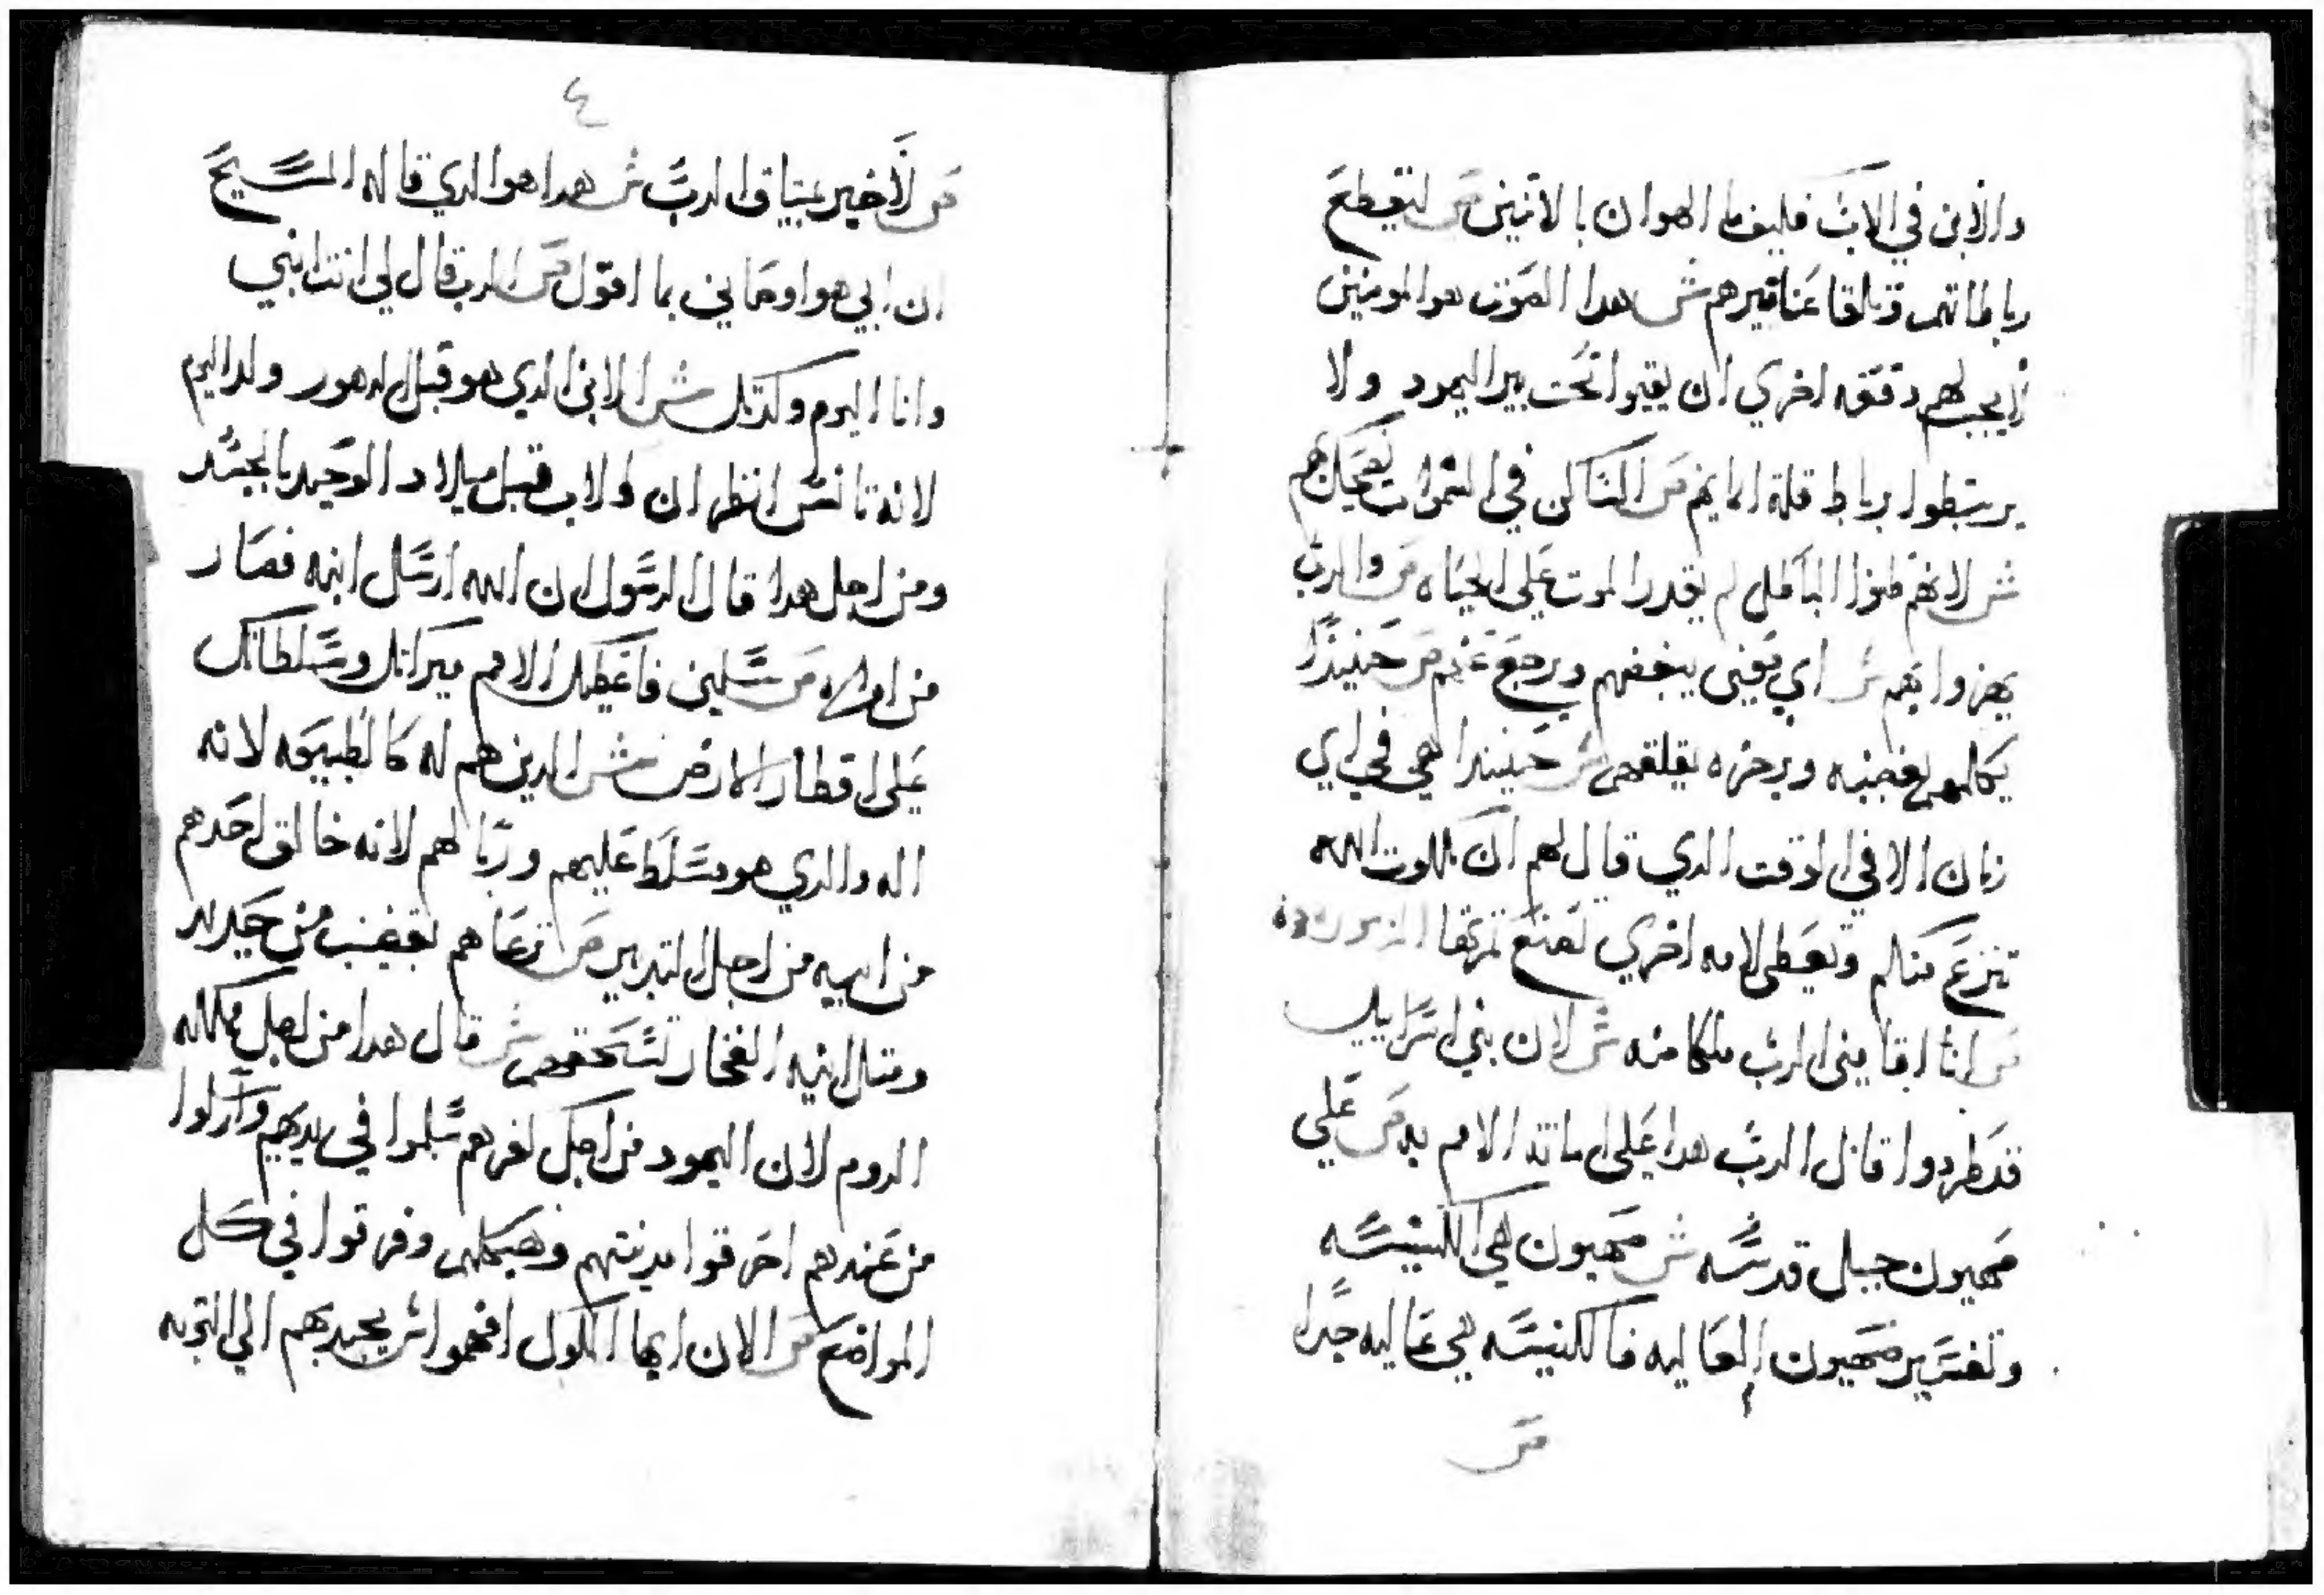 والابن في الاب فليفما الهوان بالاتنين مر لنقطع
رباطاتهم ونلقا عنا نيرهم ش هدا الصوت هو المومنين
لايجب لهم دفعه اخري ان يقيموا تحت نير اليهود ولا
يرتبطوا برباط قلة الايمان مر الساكن في السموات يضحك بهم
ش لانهم ظنوا الباطل لم يقدر الموت علي الحياه مر والرب
يهزوا بهم ش اي يعني يبغضهم ويرجع عنهم مر حينيدا
يكلمهم بغضبه وبرجزه يقلقهم ش حينيدا هي في اي
زمان الا في الوقت الدي قال لهم ان ملكوت الله
تنزع منكم وتعطي لامه اخري تصنع ثمرتها
مر انا اقامني الرب ملكا منه ش لان بني اسراييل
قد طردوا قال الرب هدا علي ساتد الامم به مر علي
صهيون جبل قدسه ش صهيون هي الكنيسه
وتفسير صهيون العاليه فالكنيسه هي عاليه جدا
مر
٤
مر لاخبر عيناق الرب ش هدا هو الدي قاله المسيح
ان ابي هو اوصاني بما اقول مر الرب قال لي انت ابني
وانا اليوم ولدتك ش الابن الدي هو قبل الدهور ولد اليوم
لانه تانس انظر ان الاب قبل ميلاد الوحيد بالجسد
ومن اجل هدا قال الرسول ان الله ارسل ابنه فصار
من امراه مر سلني فاعطيك الامم ميراتك وسلطانك
علي اقطار الارض ش الدين هم له كالطبيعه لانه
اله والدي هو مسلط عليهم وربا لهم لانه خالق احدهم
من ابيه من اجل التدبير مر ترعاهم بقضيب من حديد
ومتل انيه الفخار تسحقهم ش قال هدا من اجل مملكه
الروم لان اليهود من اجل كفرهم سلموا في يديهم وازلوا
من عندهم احرقوا مدينتهم وهيكلهم وفرقوا في كل
المواضع مر الان ايها الملوك افهموا ش يجيدبهم الي التوبه